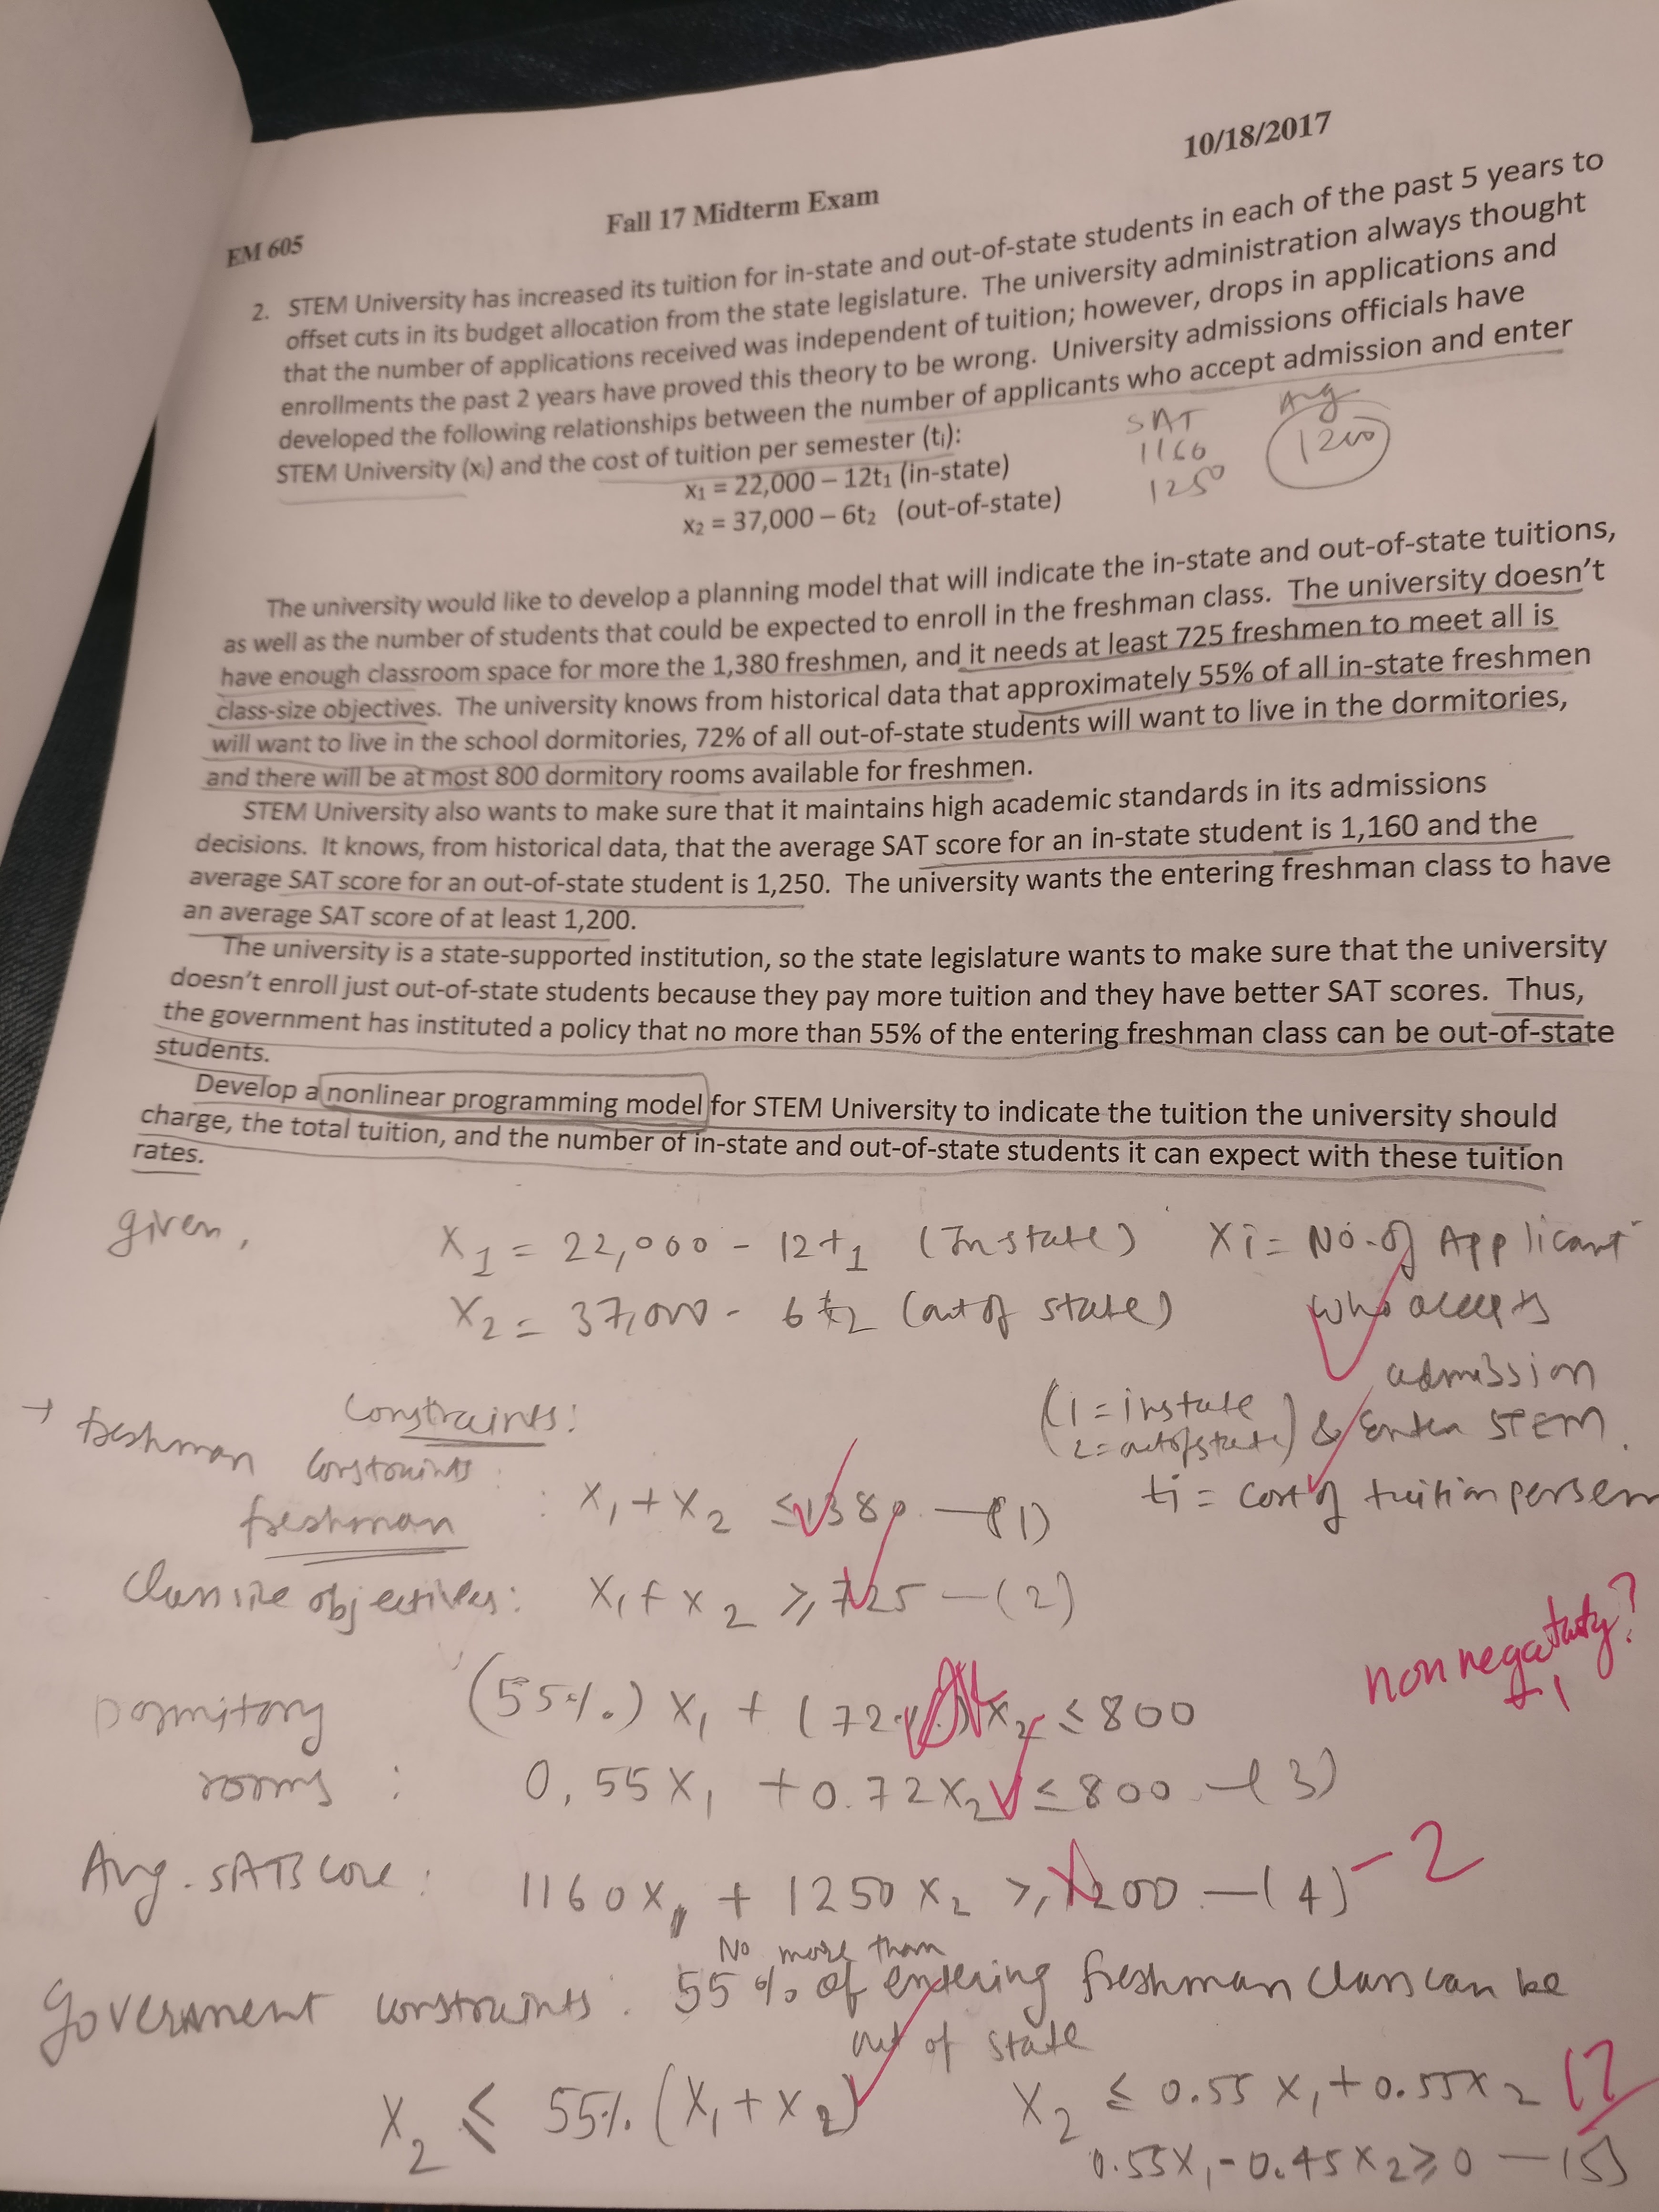 10/18/2017
EM 605 Fall 17 Midterm Exam
2. STEM University has increased its tuition for in-state and out-of-state students in each of the past 5 years to
offset cuts in its budget allocation from the state legislature. The university administration always thought
that the number of applications received was independent of tuition; however, drops in applications and
enrollments the past 2 years have proved this theory to be wrong. University admissions officials have
developed the following relationships between the number of applicants who accept admission and enter
STEM University (xᵢ) and the cost of tuition per semester (tᵢ):
SAT Avg
1160 1200
1250
x₁ = 22,000 – 12t₁ (in-state)
x₂ = 37,000 – 6t₂ (out-of-state)
The university would like to develop a planning model that will indicate the in-state and out-of-state tuitions,
as well as the number of students that could be expected to enroll in the freshman class. The university doesn't
have enough classroom space for more the 1,380 freshmen, and it needs at least 725 freshmen to meet all is
class-size objectives. The university knows from historical data that approximately 55% of all in-state freshmen
will want to live in the school dormitories, 72% of all out-of-state students will want to live in the dormitories,
and there will be at most 800 dormitory rooms available for freshmen.
STEM University also wants to make sure that it maintains high academic standards in its admissions
decisions. It knows, from historical data, that the average SAT score for an in-state student is 1,160 and the
average SAT score for an out-of-state student is 1,250. The university wants the entering freshman class to have
an average SAT score of at least 1,200.
The university is a state-supported institution, so the state legislature wants to make sure that the university
doesn't enroll just out-of-state students because they pay more tuition and they have better SAT scores. Thus,
the government has instituted a policy that no more than 55% of the entering freshman class can be out-of-state
students.
Develop a nonlinear programming model for STEM University to indicate the tuition the university should
charge, the total tuition, and the number of in-state and out-of-state students it can expect with these tuition
rates.
given, X₁ = 22,000 - 12t₁ (Instate) Xi = No. of Applicant
X₂ = 37,000 - 6t₂ (out of state) who accepts
admission
Constraints: (1 = instate
2 = out of state) & Enter STEM.
→ freshman constraints: ti = cost of tuition per sem
freshman : X₁ + X₂ ≤ 1380 —(1)
Class size objectives: X₁ + X₂ ≥ 725 —(2)
non negativity?
-1
Dormitory (55%) X₁ + (72%) X₂ ≤ 800
rooms : 0.55X₁ + 0.72X₂ ≤ 800 —(3)
Avg. SAT Score: 1160X₁ + 1250X₂ ≥ 1200 —(4) -2
No more than
Government constraints: 55% of entering freshman class can be
out of state
X₂ ≤ 55% (X₁ + X₂) X₂ ≤ 0.55X₁ + 0.55X₂
0.55X₁ - 0.45X₂ ≥ 0 —(5)